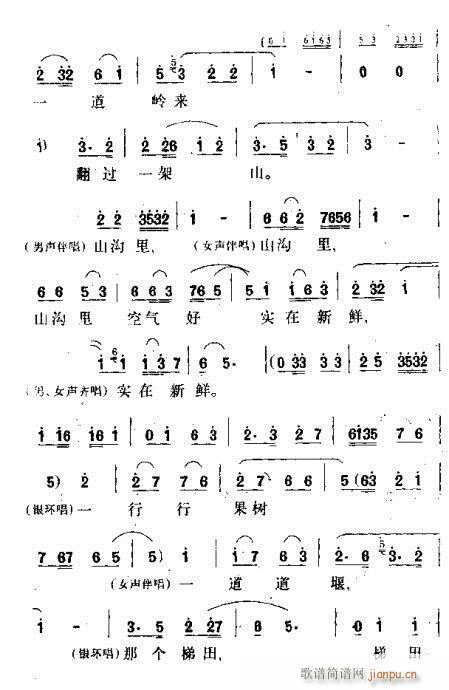 (0 i 6163 | 53 2331
2 32 6 1 | 5 3 2 2 | i - | 0 0
一 道 岭来
i) 3· 2 | 2 26 1 2 | 3· 5 3 2 | 3 -
翻过一架 山。
2 2 3532 | i - | 6 6 2 7656 | i -
(男声伴唱)山沟 里, (女声伴唱)山沟 里,
6 6 5 3 | 6 6 3 765 | 5 1 6 1 6 1 | 2 32 i
山沟里 空气 好 实在新鲜,
i i 1 3 7 | 6 5· | (0 33 3 3 | 2 5 3532
(男、女声齐唱)实在 新鲜。
1 16 16 1 | 0 1 6 3 | 2· 3 2 7 | 6135 7 6
5) 2 | 2 7 7 6 | 2 7 6 6 | 5 (63 2 1
(银环唱)一 行 行 果树
7 67 6 5 | 5) i | 1 7 6 3 | 2· 6 3· 2
(女声伴唱)一 道 道 堰,
i - | 3· 5 2 27 | 6 5· | 0 1 0 1
(银环唱)那个梯田, 梯 田
歌谱简谱网
jianpu.cn